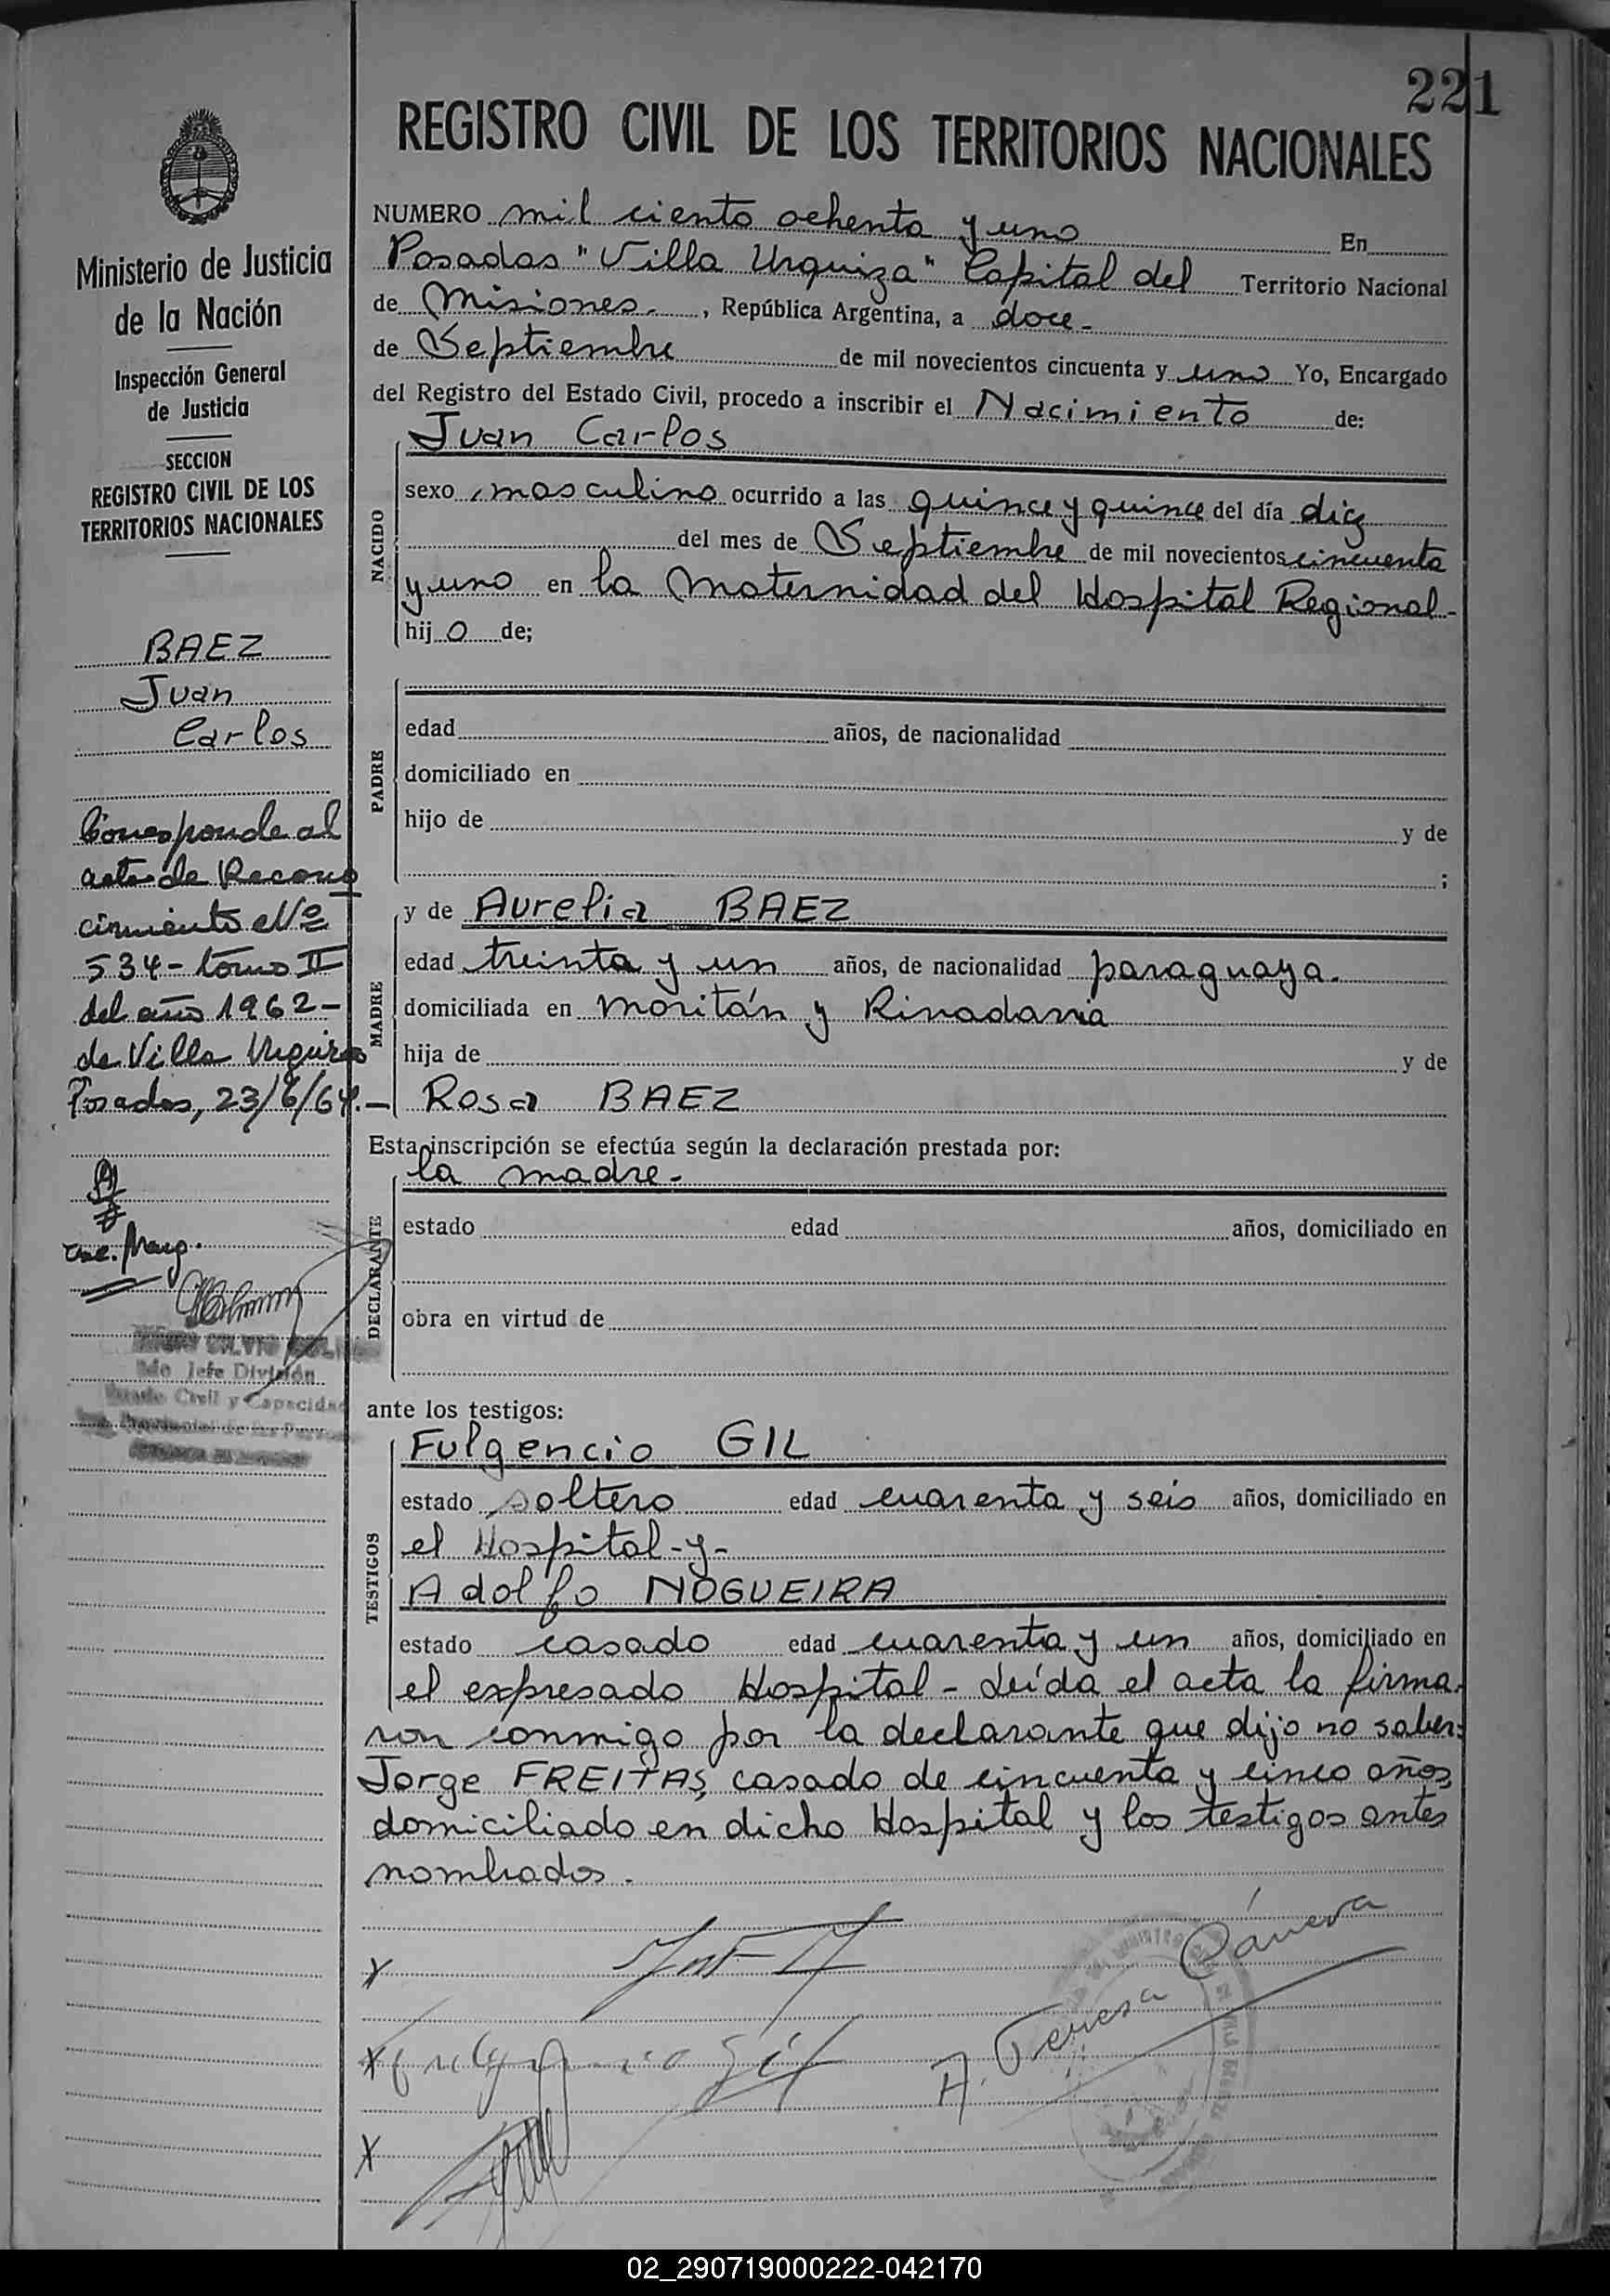 221
REGISTRO CIVIL DE LOS TERRITORIOS NACIONALES
Ministerio de Justicia
de la Nación
Inspección General
de Justicia
SECCION
REGISTRO CIVIL DE LOS
TERRITORIOS NACIONALES
BAEZ
Juan
Carlos
Corresponde al
acta de Recono
cimiento Nº
534 - tomo II
del año 1962 -
de Villa Urquiza
Posadas, 23/6/64.-
Marg.
Jefe División
Estado Civil y Capacidad
NUMERO mil ciento ochenta y uno En
Posadas "Villa Urquiza" Capital del Territorio Nacional
de Misiones.- , República Argentina, a doce-
de Septiembre de mil novecientos cincuenta y uno Yo, Encargado
del Registro del Estado Civil, procedo a inscribir el Nacimiento de:
NACIDO
Juan Carlos
sexo masculino ocurrido a las quince y quince del día diez
del mes de Septiembre de mil novecientos cincuenta
y uno en la Maternidad del Hospital Regional-
hij o de;
PADRE
edad años, de nacionalidad
domiciliado en
hijo de y de
;
MADRE
y de Aurelia BAEZ
edad treinta y un años, de nacionalidad paraguaya.
domiciliada en Moritán y Rivadavia
hija de y de
Rosa BAEZ
Esta inscripción se efectúa según la declaración prestada por:
DECLARANTE
la madre-
estado edad años, domiciliado en
obra en virtud de
ante los testigos:
TESTIGOS
Fulgencio GIL
estado soltero edad cuarenta y seis años, domiciliado en
el Hospital-y-
Adolfo NOGUEIRA
estado casado edad cuarenta y un años, domiciliado en
el expresado Hospital - Leída el acta la firma-
ron conmigo por la declarante que dijo no saber:
Jorge FREITAS, casado de cincuenta y cinco años,
domiciliado en dicho Hospital y los testigos antes
nombrados.
X
X Fulgencio Gil
A. Teresa Cáneva
X
02_290719000222-042170